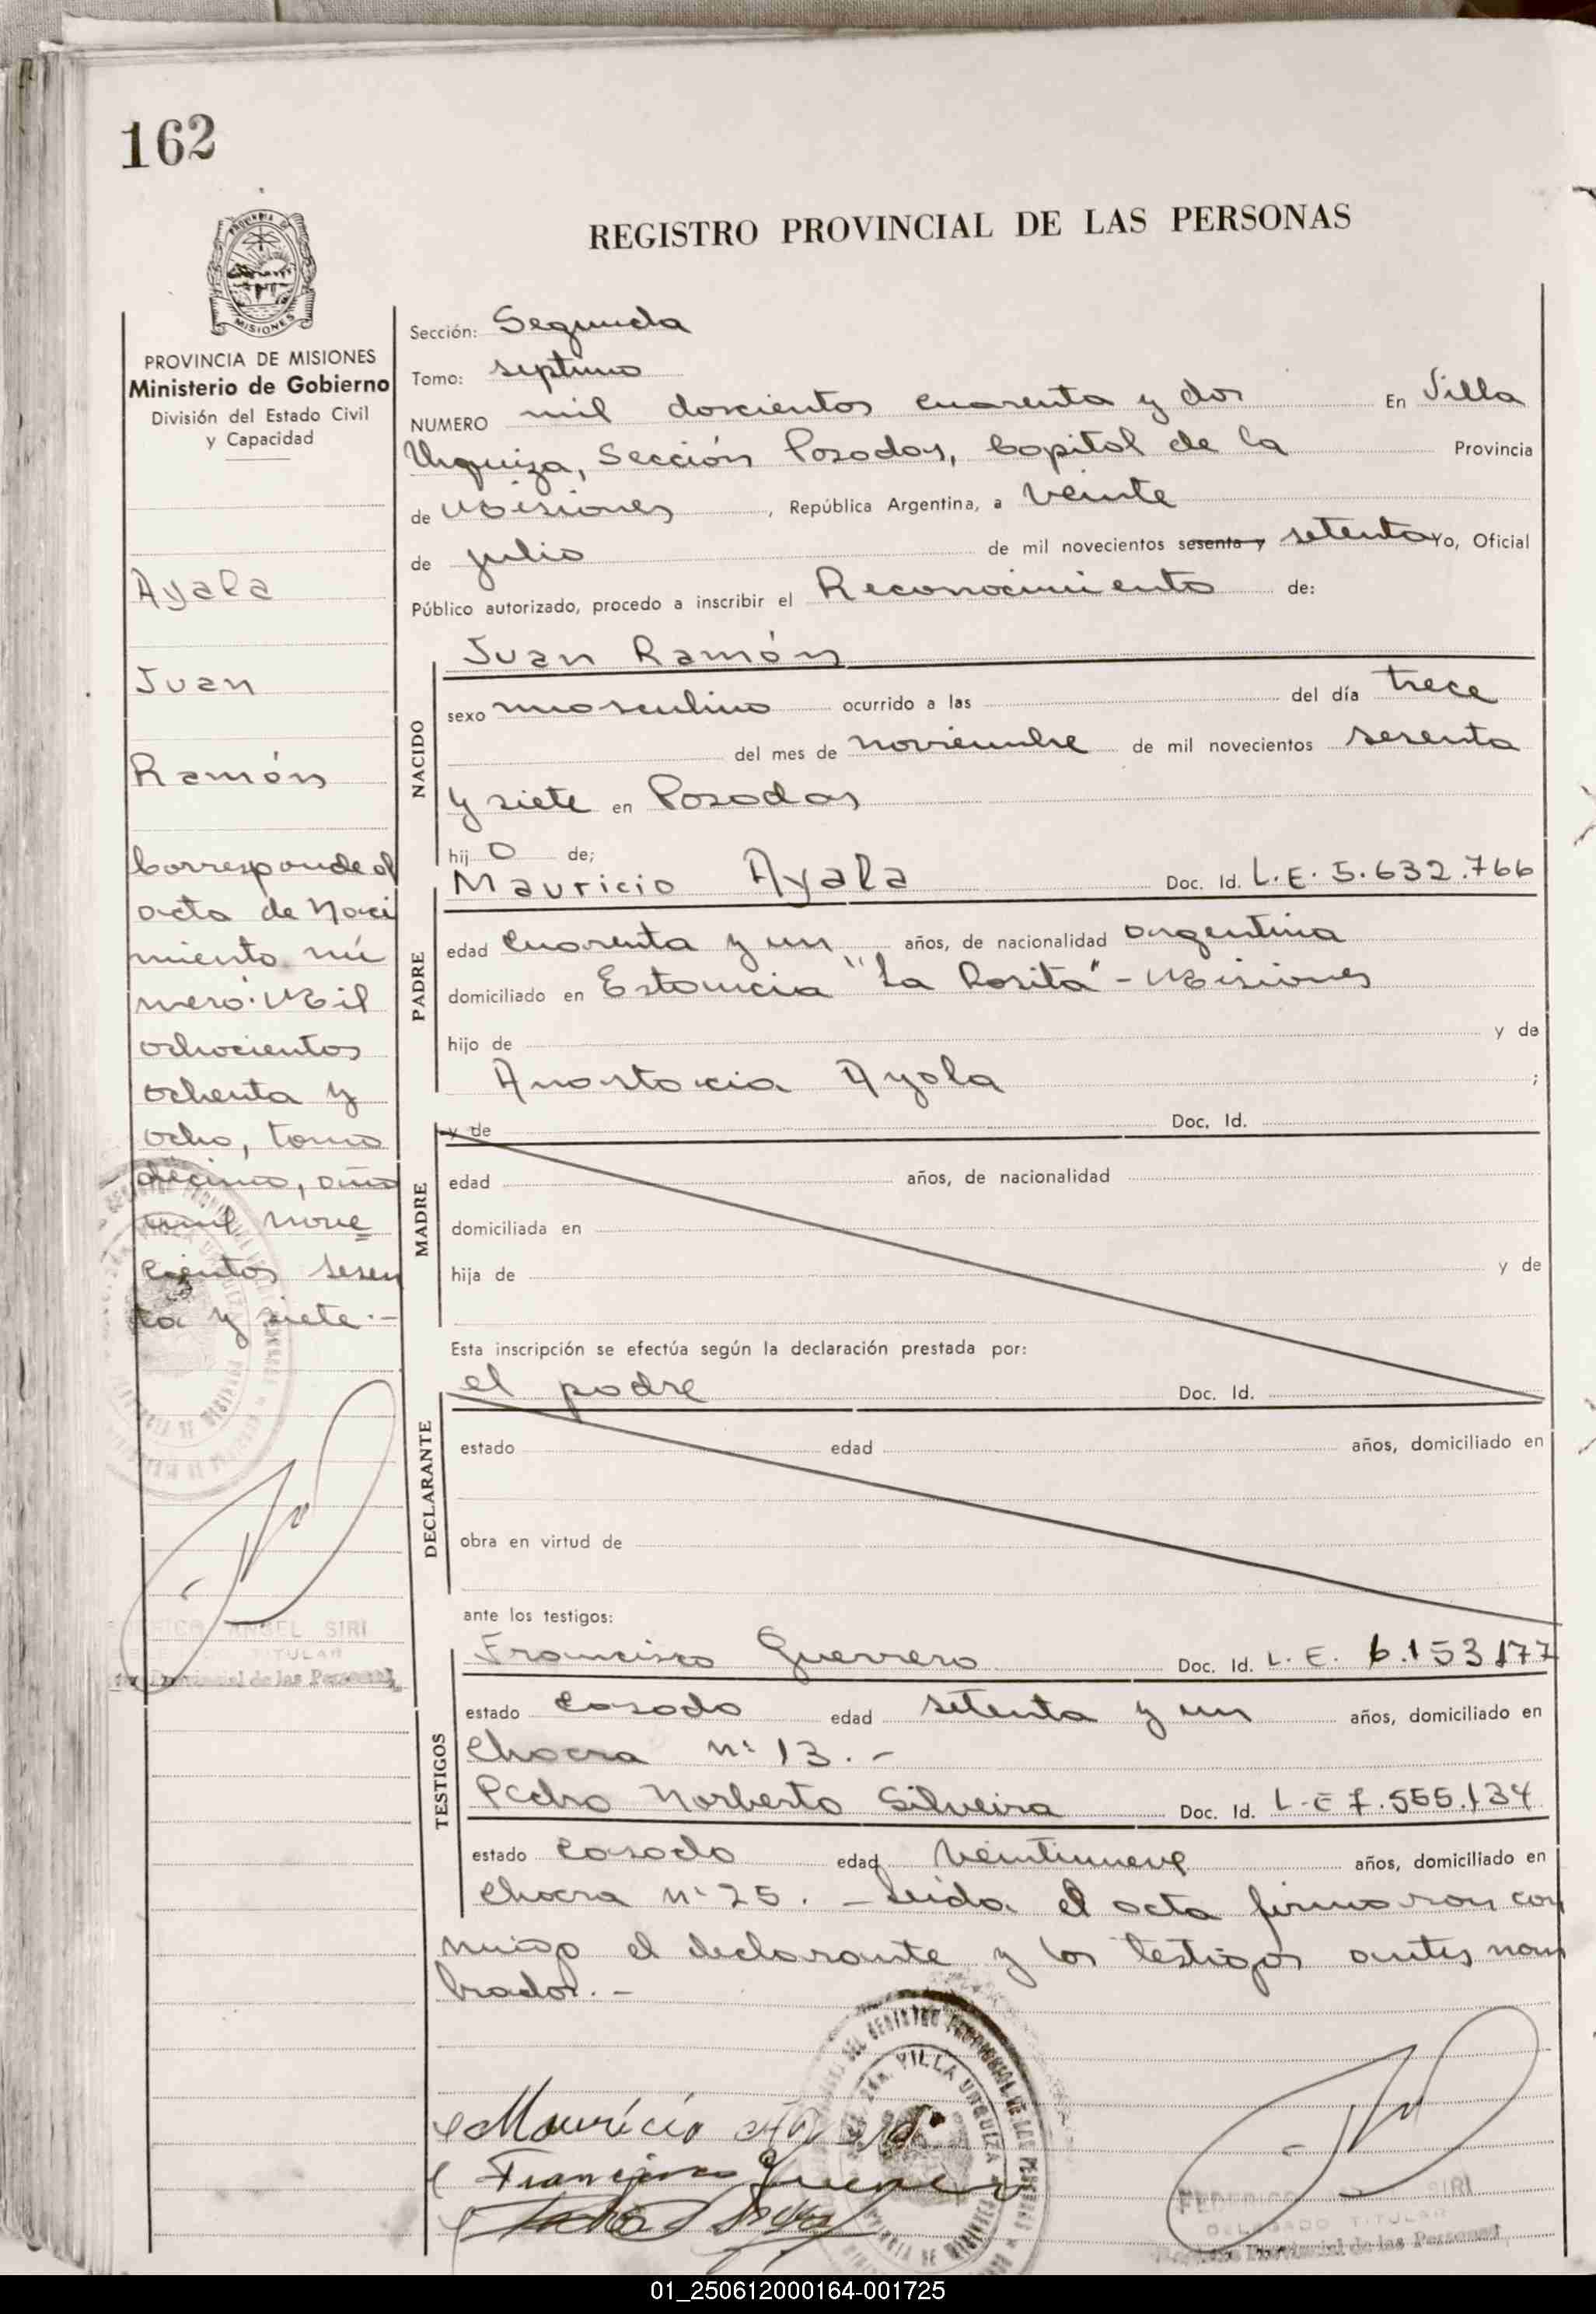 162
REGISTRO PROVINCIAL DE LAS PERSONAS
MISIONES
PROVINCIA DE MISIONES
Ministerio de Gobierno
División del Estado Civil
y Capacidad
Ayala
Juan
Ramón
Corresponde al
acta de Naci
miento nú
mero: Mil
ochocientos
ochenta y
ocho, tomo
décimo, año
mil nove
cientos sesen
ta y siete.-
ANGEL SIRI
TITULAR
Provincial de las Personas
Sección: Segunda
Tomo: septimo
NUMERO mil doscientos cuarenta y dos En Villa
Urquiza, Sección Posadas, Capital de la Provincia
de Misiones, República Argentina, a veinte
de julio de mil novecientos sesenta y setenta yo, Oficial
Público autorizado, procedo a inscribir el Reconocimiento de:
NACIDO
Juan Ramón
sexo masculino ocurrido a las del día trece
del mes de noviembre de mil novecientos sesenta
y siete en Posadas
hijo de;
PADRE
Mauricio Ayala Doc. Id. L.E. 5.632.766
edad cuarenta y un años, de nacionalidad argentina
domiciliado en Estancia "La Rosita" - Misiones
hijo de y de
Anastacia Ayala ;
MADRE
y de Doc. Id.
edad años, de nacionalidad
domiciliada en
hija de y de
Esta inscripción se efectúa según la declaración prestada por:
DECLARANTE
el padre Doc. Id.
estado edad años, domiciliado en
obra en virtud de
ante los testigos:
TESTIGOS
Francisco Guerrero Doc. Id. L.E. 6.153.177
estado casado edad setenta y un años, domiciliado en
Chacra nº 13.-
Pedro Norberto Silveira Doc. Id. L-E 7.555.134
estado casado edad veintinueve años, domiciliado en
Chacra nº 25. - Leida el acta firmaron con
migo el declarante y los testigos antes nom
brados.-
VILLA URQUIZA
Mauricio Ayala
Francisco Guerrero
FEDERICO SIRI
DELEGADO TITULAR
Provincial de las Personas
01_250612000164-001725